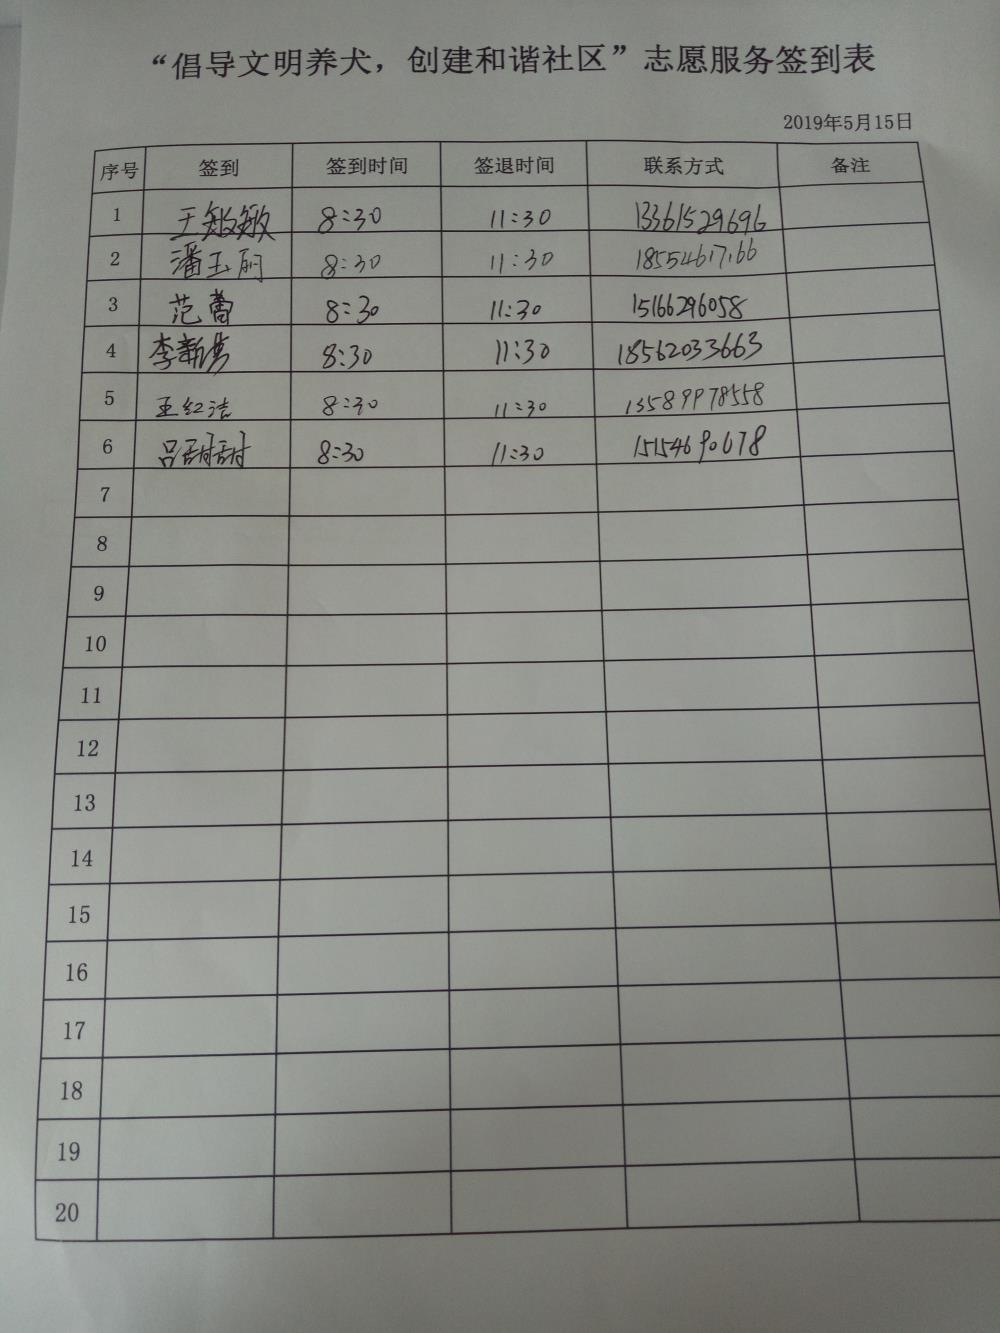 “倡导文明养犬，创建和谐社区”志愿服务签到表
2019年5月15日
序号 签到 签到时间 签退时间 联系方式 备注
1 王敏敏 8:30 11:30 13361529696
2 潘玉丽 8:30 11:30 18554617166
3 范蕾 8:30 11:30 15166296058
4 李新 8:30 11:30 18562033663
5 王红洁 8:30 11:30 13589978558
6 吕甜甜 8:30 11:30 15154690678
7
8
9
10
11
12
13
14
15
16
17
18
19
20